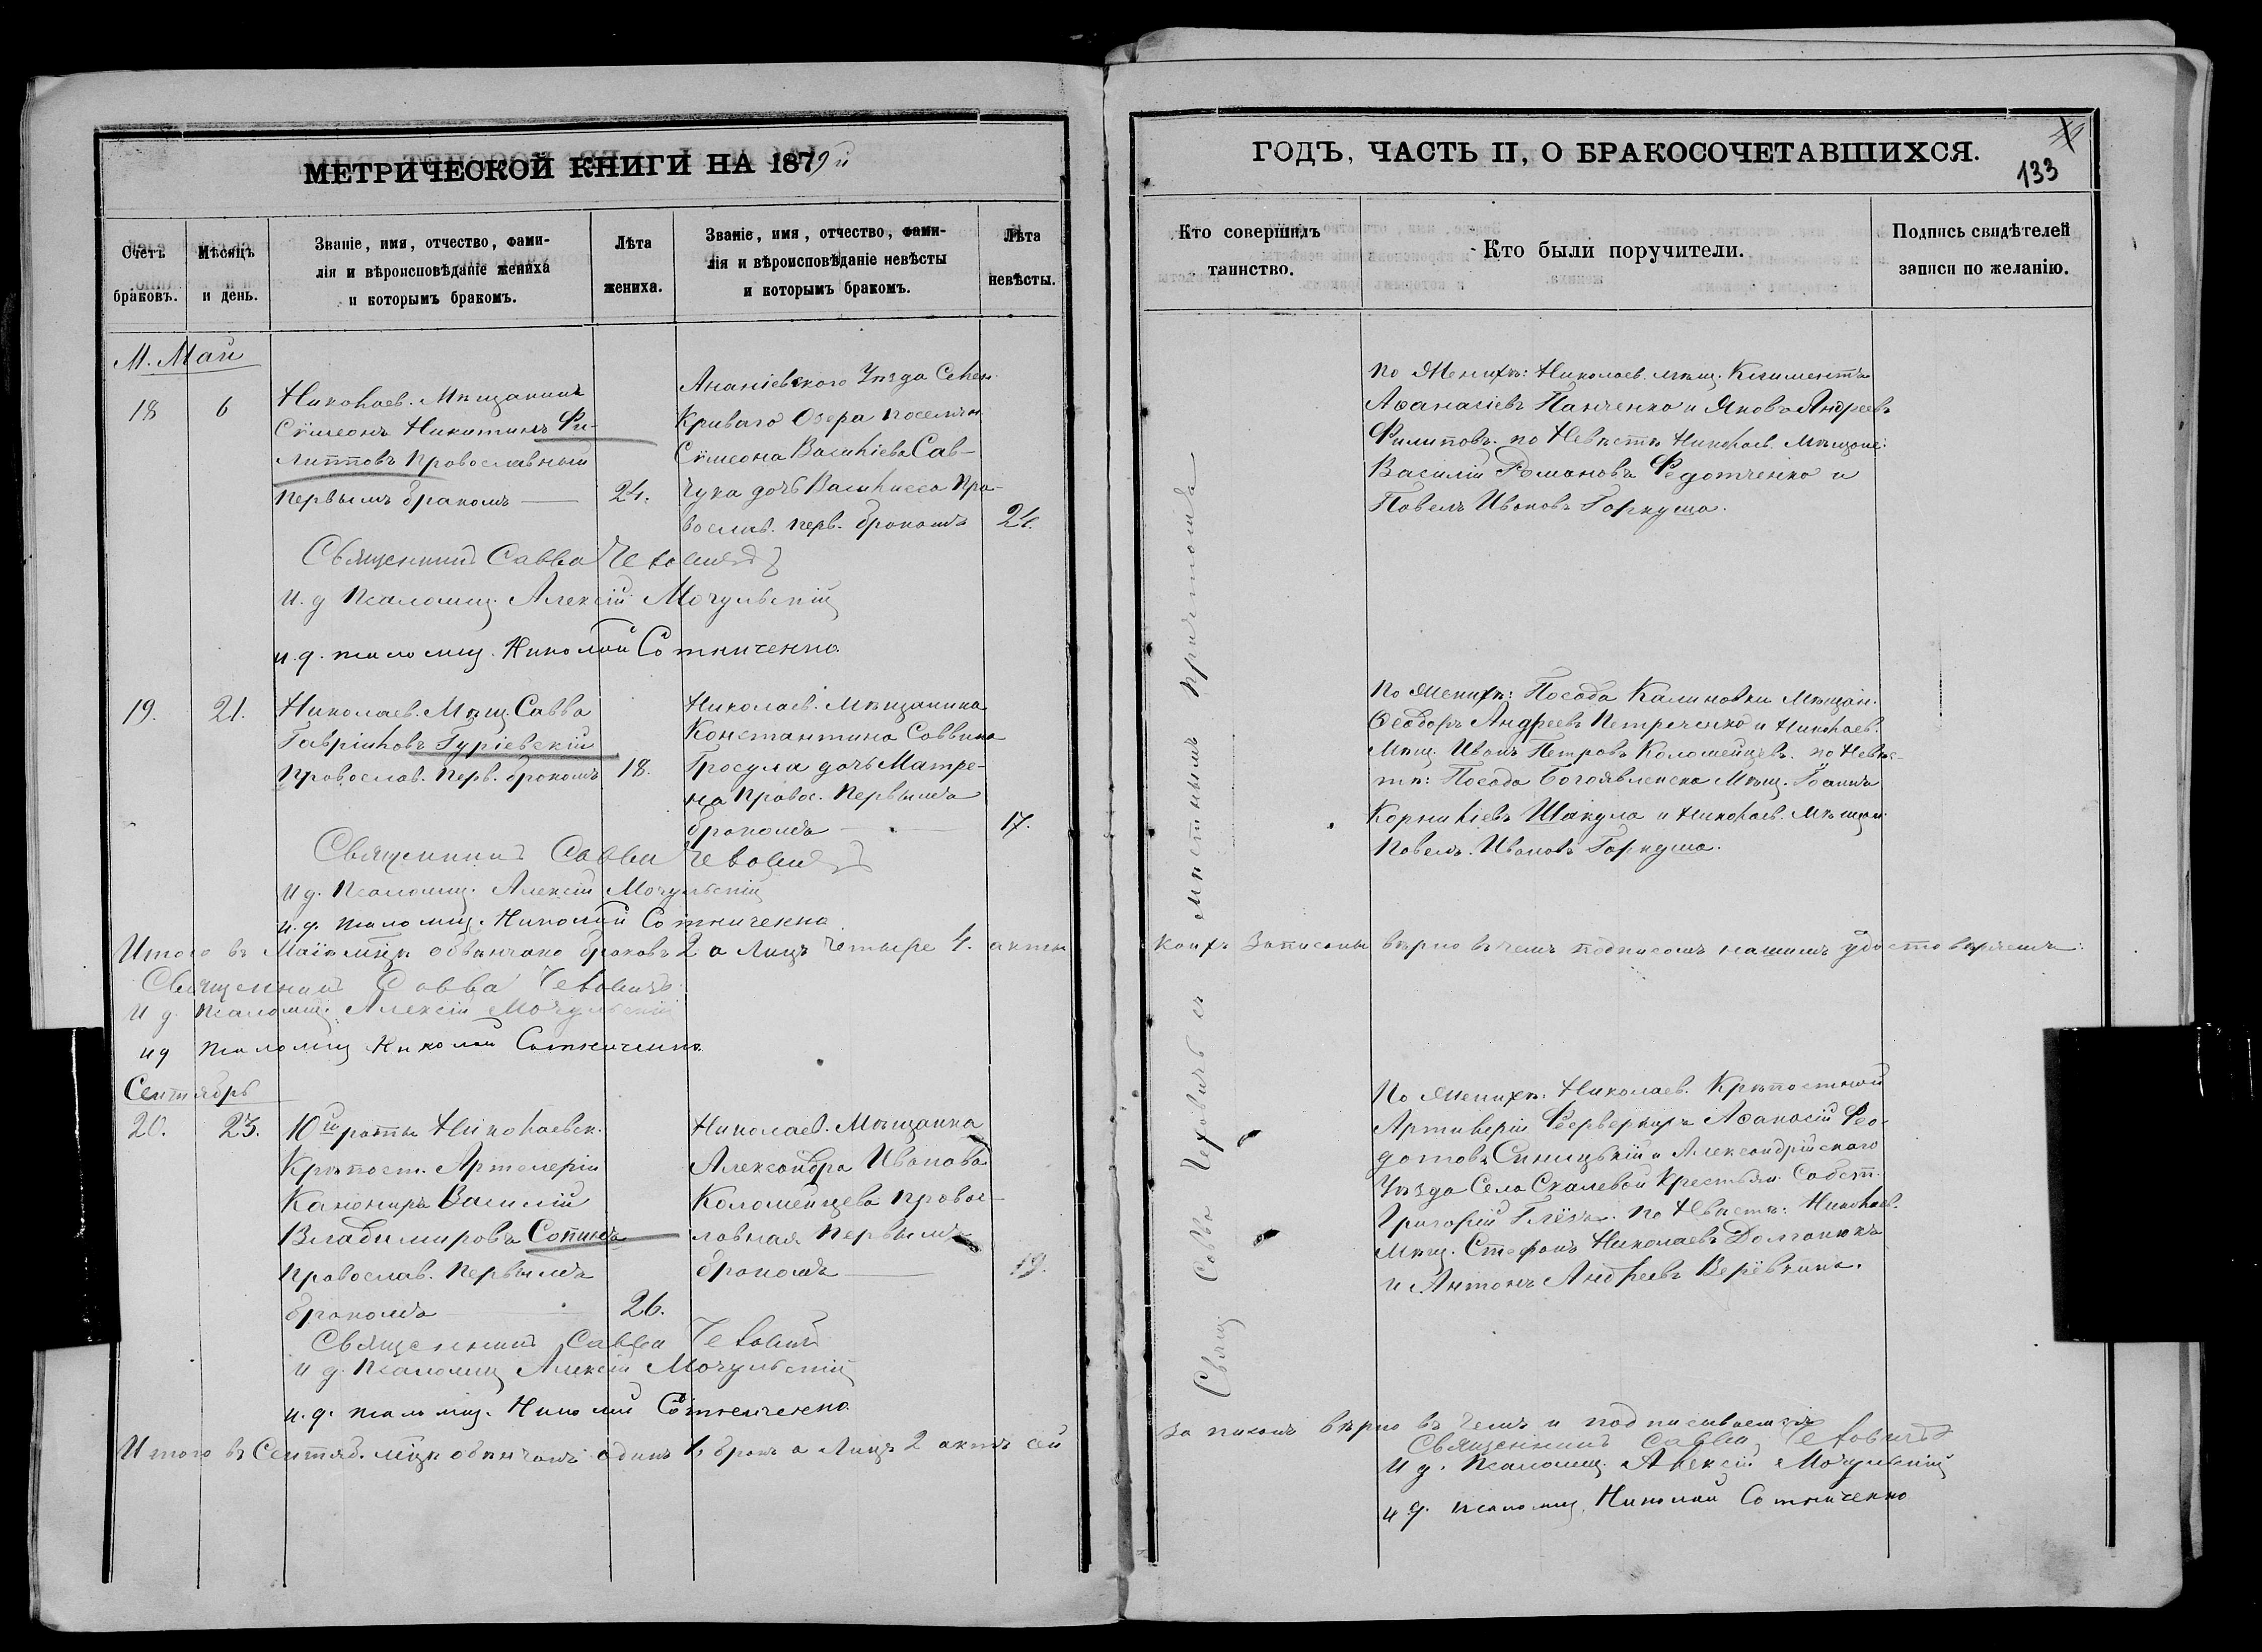 МЕТРИЧЕСКОЙ КНИГИ НА 1879й
Счетъ браковъ.
Мѣсяцъ и день.
Званіе, имя, отчество, фами-
лія и вѣроисповѣданіе жениха
и которымъ бракомъ.
Лѣта жениха.
Званіе, имя, отчество, фами-
лія и вѣроисповѣданіе невѣсты
и которымъ бракомъ.
Лѣта невѣсты.
М. Май
18 6
Николаев. Мѣщанинъ
Сѵмеонъ Никитинъ Фи-
липповъ православный
первымъ бракомъ — 24.
Ананіевскаго Уѣзда Селен.
Криваго Озера поселян
Сѵмеона Василіева Сав-
чука дочь Василисса Пра-
вослав. перв. бракомъ 21.
Священникъ Савва Чеховичъ
И. д. Псаломщ. Алексій Мочульскій
и. д. псаломщ. Николай Сотниченко
19. 21.
Николаев. Мѣщ. Савва
Гавріиловъ Гуріевскій
Православ. Перв. бракомъ 18.
Николаев. Мѣщанина
Константина Саввина
Гросула дочь Матре-
на Правос. Первымъ
бракомъ — 17.
Священникъ Савва Чеховичъ
И д. Псаломщ. Алексій Мочульскій
и. д. псаломщ. Николай Сотниченко
Итого въ Маіѣ мцѣ обвѣнчано браковъ 2 а Лицъ четыре 4. акты
Священникъ Савва Чеховичъ
И д. Псаломщ. Алексій Мочульскій
ид псаломщ Николай Сотниченко
Сентябрь
20. 23.
10й роты Николаевск.
Крѣпост. Артилеріи
Канониръ Василій
Владимировъ Сопинъ
Православ. Первымъ
бракомъ — 26.
Николаев. Мѣщанка
Александра Иванова
Коломейцева Правос-
лавная Первымъ
бракомъ — 19.
Священникъ Савва Чеховичъ
И д. Псаломщ Алексій Мочульскій
и. д. псаломщ. Николай Сотниченко
Итого въ Сентяб. мцѣ обвѣнчанъ одинъ 1. бракъ а Лицъ 2 актъ сей
ГОДЪ, ЧАСТЬ II, О БРАКОСОЧЕТАВШИХСЯ.
133
Кто совершилъ таинство.
Кто были поручители.
Подпись свидѣтелей
записи по желанію.
Свящ. Савва Чеховичъ съ мѣстнымъ причтомъ
По Женихѣ: Николаев. мѣщ. Климентъ
Аѳанасіевъ Панченко и Яковъ Андреевъ
Филиповъ. по Невѣстѣ Николаев. Мѣщане:
Василій Романовъ Федотченко и
Павелъ Ивановъ Горкуша.
По Женихѣ: Посада Калиновки Мѣщан.
Ѳеодоръ Андреевъ Петреченко и Николаев.
Мѣщ. Иванъ Петровъ Коломейцевъ. по Невѣс-
тѣ: Посада Богоявленска Мѣщ. Іоаннъ
Корниліевъ Шакула и Николаев. Мѣщан.
Павелъ Ивановъ Горкуша.
коихъ записаны вѣрно въ чемъ подписомъ нашимъ удостовѣряемъ:
По Женихѣ: Николаев. Крѣпостной
Артилеріи Феерверкеръ Аѳанасій Фео-
дотовъ Синицькій и Александрійскаго
Уѣзда Села Скалевой Крестьян. Собст.
Григорій Глёза. По Невѣстѣ: Николаев.
Мѣщ. Стефанъ Николаевъ Долганюкъ
и Антонъ Андреевъ Верёвкинъ.
записанъ вѣрно въ чемъ и подписываемъ
Священникъ Савва Чеховичъ
И д. Псаломщ. Алексій Мочульскій
и д. псаломщ. Николай Сотниченко